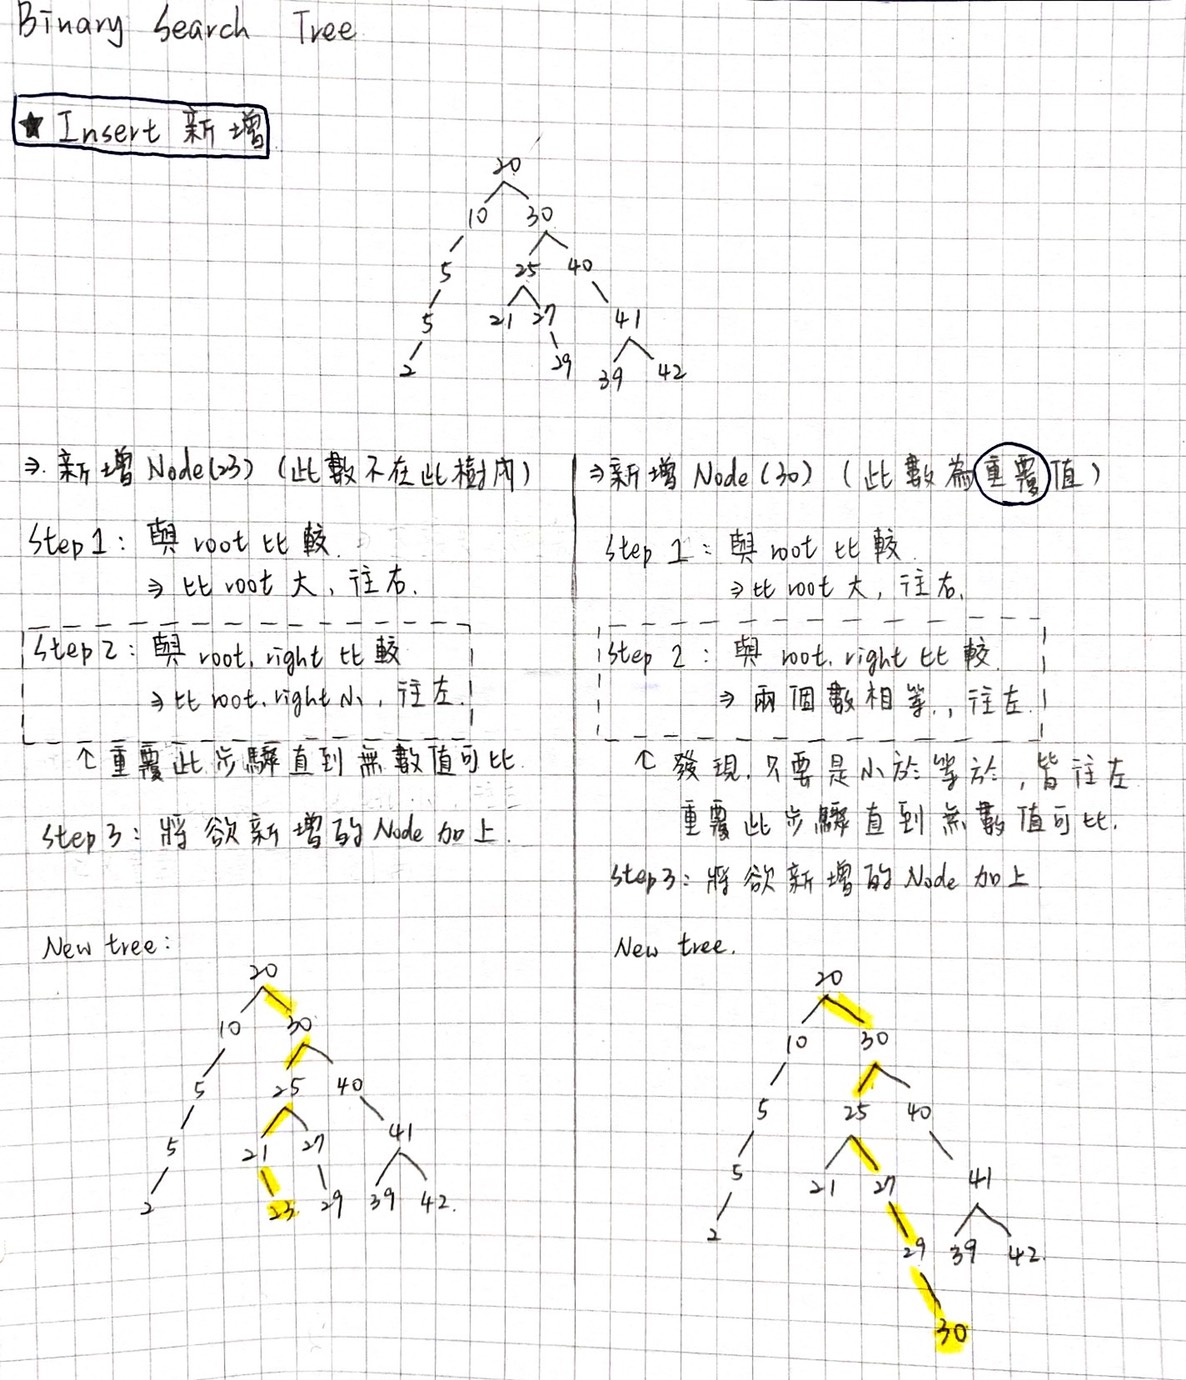 Binary Search Tree
★ Insert 新增
20
10 30
5 25 40
5 21 27 41
2 29 39 42
⇒ 新增 Node(23) (此數不在此樹內)
Step 1: 與 root 比較.
⇒ 比 root 大, 往右.
Step 2: 與 root.right 比較
⇒ 比 root.right 小, 往左.
↑ 重覆此步驟直到無數值可比.
Step 3: 將欲新增的 Node 加上.
New tree:
20
10 30
5 25 40
5 21 27 41
2 23 29 39 42.
⇒ 新增 Node (30) (此數為重覆值)
Step 1: 與 root 比較.
⇒ 比 root 大, 往右.
Step 2: 與 root.right 比較.
⇒ 兩個數相等., 往左.
↑ 發現, 只要是小於等於, 皆往左
重覆此步驟直到無數值可比.
Step 3: 將欲新增的 Node 加上.
New tree.
20
10 30
5 25 40
5 21 27 41
2 29 39 42.
30